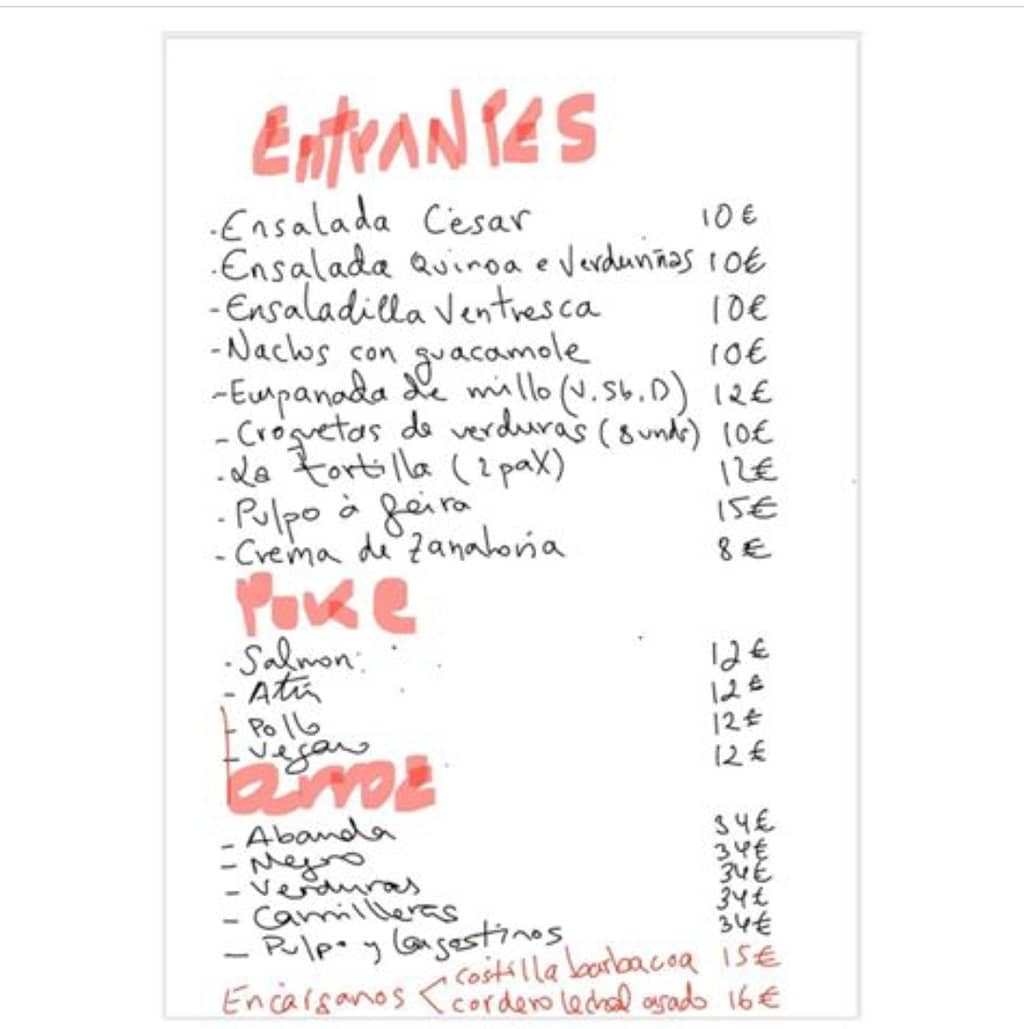 EntrANTES
.Ensalada César 10€
.Ensalada Quinoa e Verduriñas 10€
-Ensaladilla Ventresca 10€
-Nachos con guacamole 10€
-Empanada de millo (V.Sb.D) 12€
-Croquetas de verduras (8 unds) 10€
.La tortilla (2 pax) 12€
.Pulpo à feira 15€
-Crema de zanahoria 8€
Poke
.Salmon: 12€
-Atún 12€
-Pollo 12€
-Vegano 12€
arroz
-Abanda 34€
-Negro 34€
-Verduras 34€
-Carrilleras 34€
-Pulpo y langostinos 34€
costilla barbacoa 15€
Encárganos < cordero lechal asado 16€